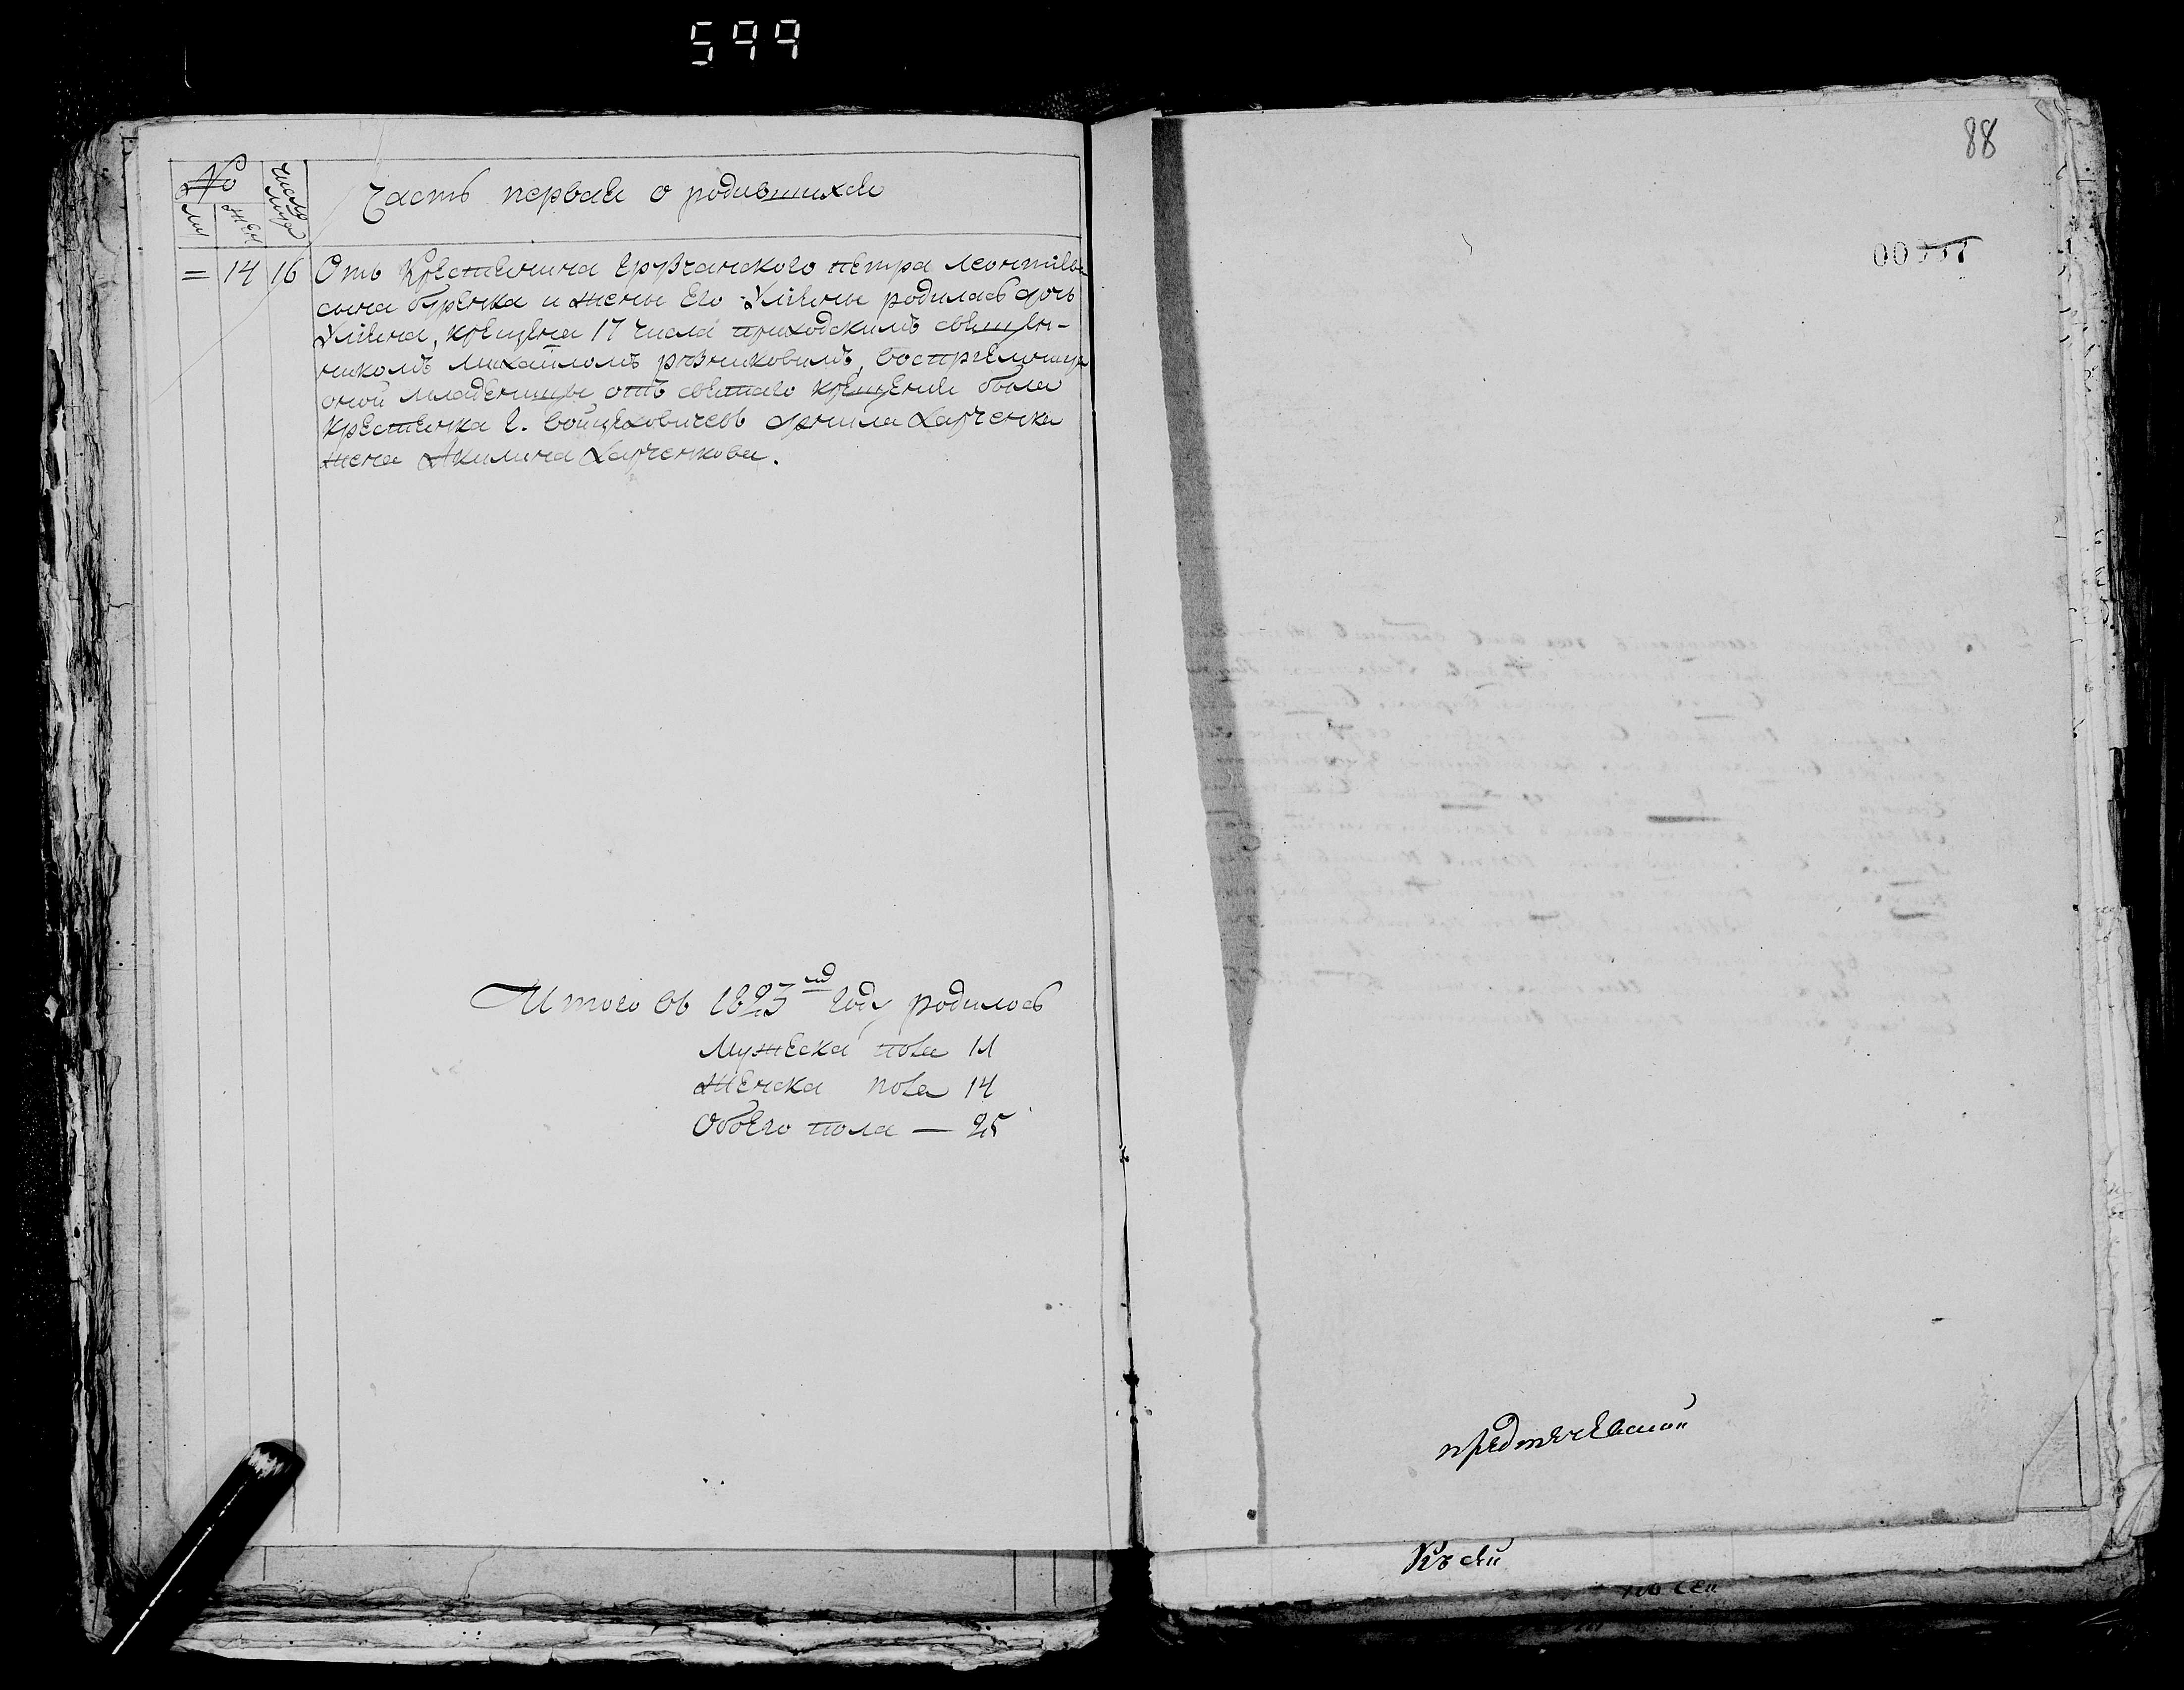 599
№
Числа
мѵра
Часть первая о родившихся
Мн
Жен
= 14 16 Отъ Крестянина Ерузчанского петра леонтиева
сына буренка и жены Его Улияны родилась дочь
Улияна, крещена 17 числа приходскимъ священ-
никомъ михаиломъ рѣзниковимъ, воспрiемницею
оной младеницы отъ святаго крещения была
крестянка г. войцеховичевъ данила Харченка
жена Акилина Харченкова.
Итого въ 1823мъ году родилось
Мужеска пола 11
Женска пола 14
Обоего пола — 25
88
предтечевской
Къ сей
по сей